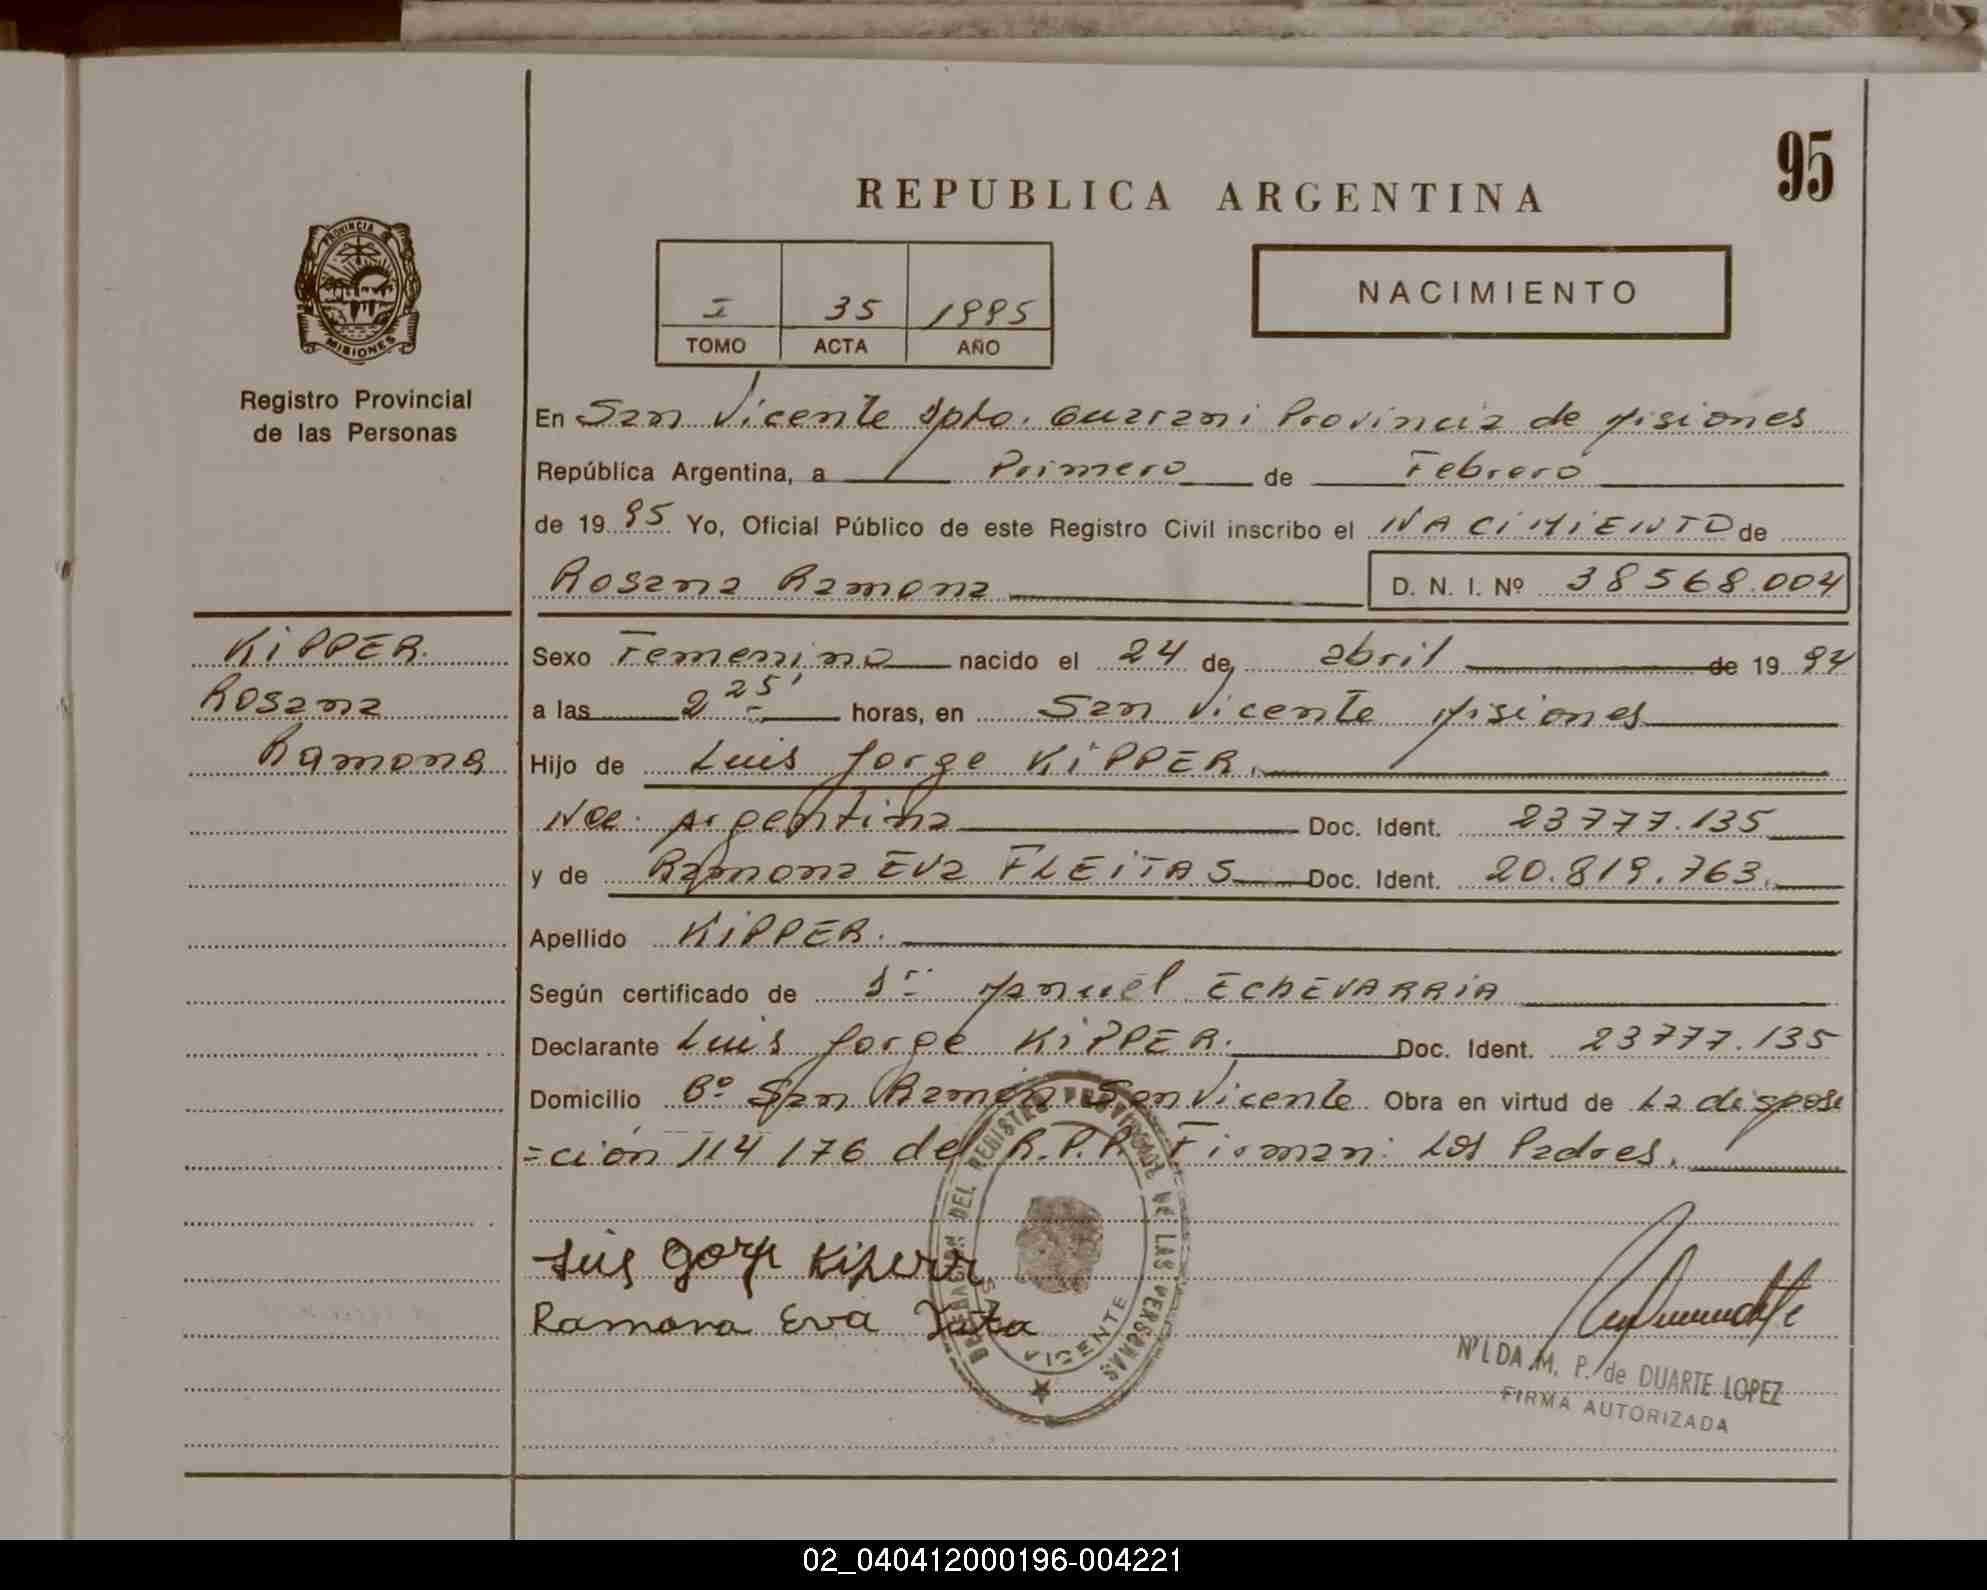 95
REPUBLICA ARGENTINA
PROVINCIA DE
MISIONES
I 35 1995
TOMO ACTA AÑO
NACIMIENTO
Registro Provincial
de las Personas
En San Vicente Dpto. Guarani Provincia de Misiones
República Argentina, a Primero de Febrero
de 19 95 Yo, Oficial Público de este Registro Civil inscribo el NACIMIENTO de
Rosana Ramona D. N. I. Nº 38568.004
KIPPER.
Rosana
Ramona
Sexo Femenino nacido el 24 de abril de 19 94
a las 2 25' horas, en San Vicente Misiones
Hijo de Luis Jorge KIPPER.
Nac. Argentina Doc. Ident. 23777.135
y de Ramona Eva FLEITAS Doc. Ident. 20.819.763.
Apellido KIPPER.
Según certificado de Dr. Manuel ECHEVARRIA
Declarante Luis Jorge KIPPER. Doc. Ident. 23777.135
Domicilio Bº San Ramón San Vicente Obra en virtud de La disposi
=ción 114/76 del R.P.P. Firman: Los Padres.
Ramona Eva
DELEGACION DEL REGISTRO PROVINCIAL DE LAS PERSONAS
S. VICENTE
NILDA M. P. de DUARTE LOPEZ
FIRMA AUTORIZADA
02_040412000196-004221